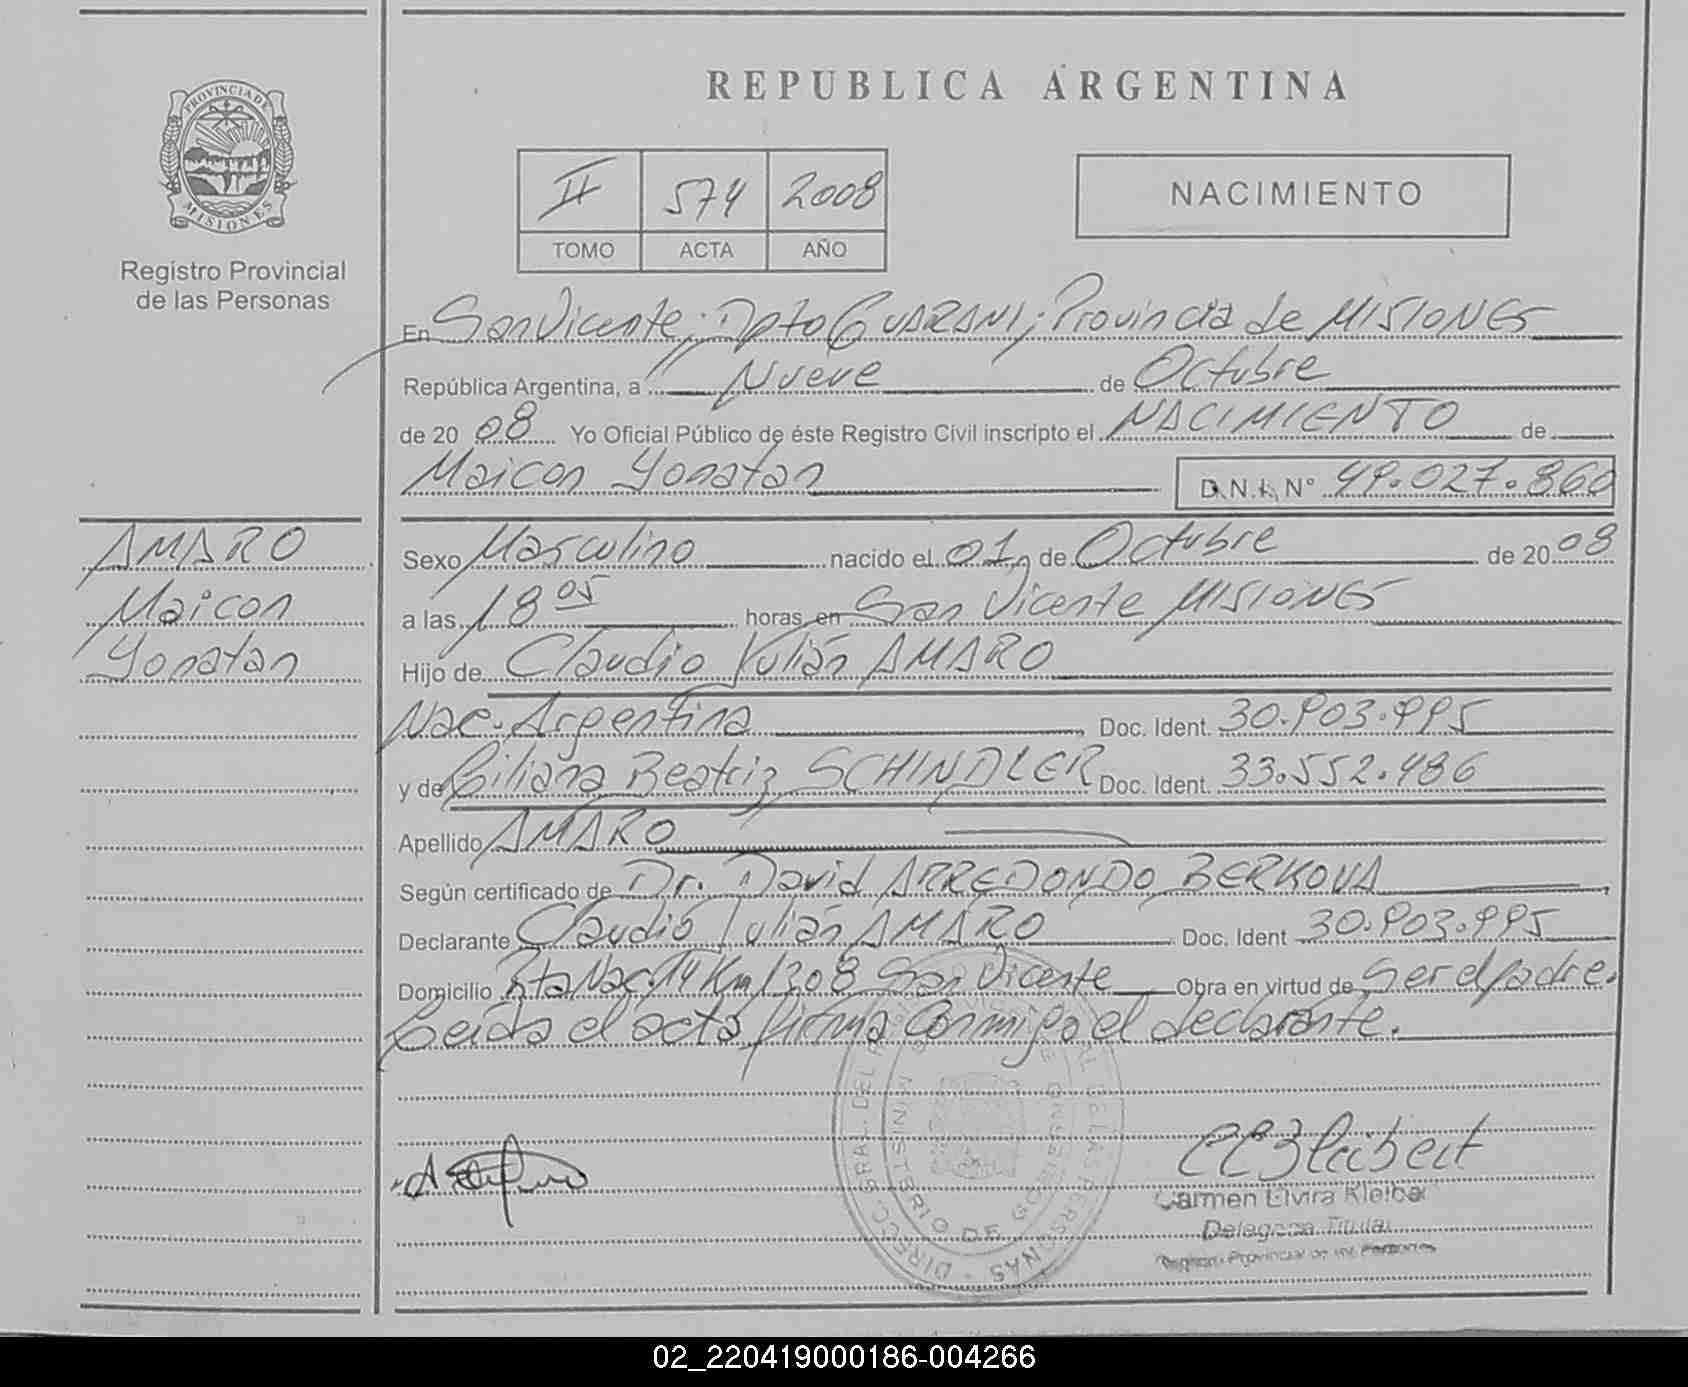 REPUBLICA ARGENTINA
PROVINCIA DE
MISIONES
Registro Provincial
de las Personas
II 574 2008
TOMO ACTA AÑO
NACIMIENTO
En San Vicente; Dpto GUARANI; Provincia de MISIONES
República Argentina, a Nueve de Octubre
de 20 08 Yo Oficial Público de éste Registro Civil inscripto el NACIMIENTO de
Maicon Yonatan D.N.I. N° 49.027.860
AMARO
Maicon
Yonatan
Sexo Masculino nacido el 01 de Octubre de 20 08
a las 18 05 horas, en San Vicente MISIONES
Hijo de Claudio Julián AMARO
Nac. Argentina Doc. Ident. 30.903.995
y de Biliana Beatriz SCHINDLER Doc. Ident. 33.552.486
Apellido AMARO
Según certificado de Dr. David ARREDONDO BERKOVA
Declarante Claudio Julián AMARO Doc. Ident 30.903.995
Domicilio Rta Nac. 14 Km 1308 San Vicente Obra en virtud de Ser el padre.
Leída el acta firma conmigo el declarante.
Carmen Elvira Kleiber
Delegada Titular
Registro Provincial de las Personas
02_220419000186-004266